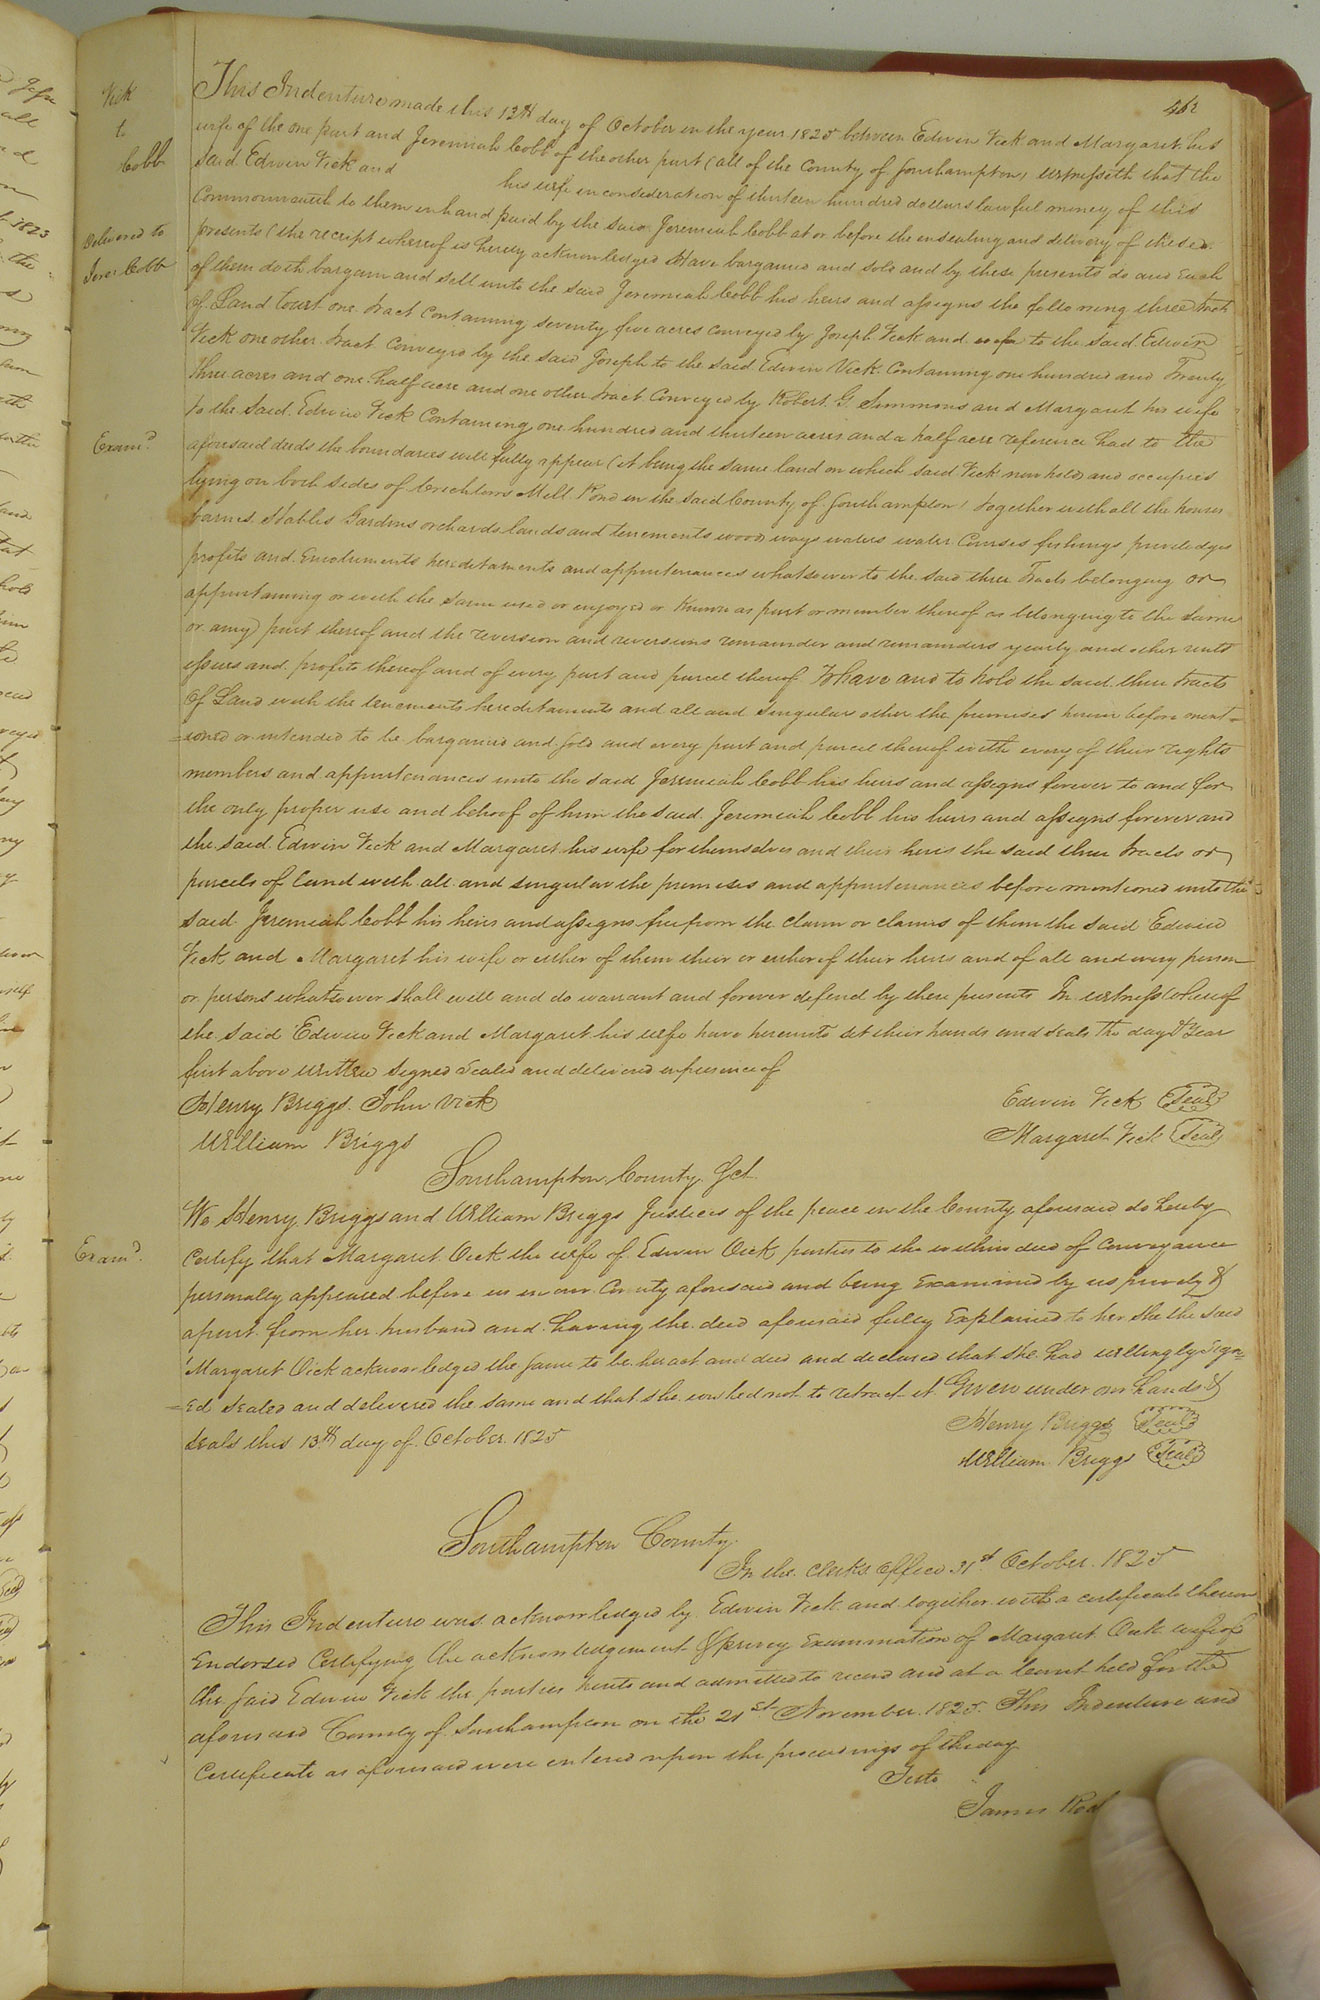 462
Vick
to
Cobb
Delivered to
Jerer Cobb
This Indenture made this 13th day of October in the year 1825 between Edwin Vick and Margaret his
wife of the one part and Jeremiah Cobb of the other part (all of the County of Southampton) witnesseth that the
said Edwin Vick and his wife in consideration of thirteen hundred dollars lawful money of this
Commonwealth to them in hand paid by the said Jeremiah Cobb at or before the ensealing and delivery of these
presents (the receipt whereof is hereby acknowledged Have bargained and sold and by these presents do and each
of them doth bargain and sell unto the said Jeremiah Cobb his heirs and assigns the following three tracts
of Land towit one tract Containing seventy five acres conveyed by Joseph Vick and wife to the said Edwin
Vick one other tract Conveyed by the said Joseph to the said Edwin Vick Containing one hundred and Twenty
three acres and one half acre and one other tract Conveyed by Robert G. Simmons and Margaret his wife
to the Said Edwin Vick Containing one hundred and thirteen acres and a half acre reference had to the
aforesaid deeds the boundaries will fully appear (it being the same land on which said Vick now holds and occupies
lying on both sides of Crichlows Mill Pond in the said County of Southampton) together with all the houses
barns Stables Gardens orchards lands and tenements wood ways waters water Courses fishings priviledges
profits and Emoluments hereditaments and appurtenances whatsoever to the said three Tracts belonging or
appurtaining or with the same used or enjoyed or known as part or member thereof as belonging to the same
or any part thereof and the reversion and reversions remainder and remainders yearly and other rents
issues and profits thereof and of every part and parcel thereof To have and to hold the said three tracts
of Land with the tenements hereditaments and all and singular other the premises herein before ment=
=ioned or intended to be bargained and sold and every part and parcel thereof with every of their rights
members and appurtenances unto the said Jeremiah Cobb his heirs and assigns forever to and for
the only proper use and behoof of him the said Jeremiah Cobb his heirs and assigns forever and
the said Edwin Vick and Margaret his wife for themselves and their heirs the said three tracts or
parcels of land with all and singular the premises and appurtenances before mentioned unto the
said Jeremiah Cobb his heirs and assigns free from the claim or claims of them the said Edwin
Vick and Margaret his wife or either of them their or either of their heirs and of all and every person
or persons whatsoever shall will and do warrant and forever defend by these presents In witness whereof
the said Edwin Vick and Margaret his wife have hereunto set their hands and seals the day & year
first above written Signed Sealed and delivered in presence of
Henry Briggs. John Vick
Edwin Vick Seal
William Briggs
Margaret Vick Seal
Examd.
Southampton County Sct
We Henry Briggs and William Briggs Justices of the peace in the County aforesaid do hereby
Certify that Margaret Vick the wife of Edwin Vick parties to the within deed of Conveyance
Examd.
personally appeared before us in our County aforesaid and being Examined by us privily &
apart from her husband and having the deed aforesaid fully Explained to her she the said
Margaret Vick acknowledged the same to be her act and deed and declared that she had willingly Sign=
=ed Sealed and delivered the same and that she wished not to retract it Given under our hands &
seals this 13th day of October 1825
Henry Briggs Seal
William Briggs Seal
Southampton County.
In the clerks office 31st October 1825
This Indenture was acknowledged by Edwin Vick and together with a certificate thereon
Endorsed Certifying the acknowledgement & privey Examination of Margaret Vick wife of
the said Edwin Vick the parties hereto and admitted to record and at a Court held for the
aforesaid County of Southampton on the 21st November 1825 This Indenture and
Certificate as aforesaid were entered upon the proceedings of the day
Teste
James